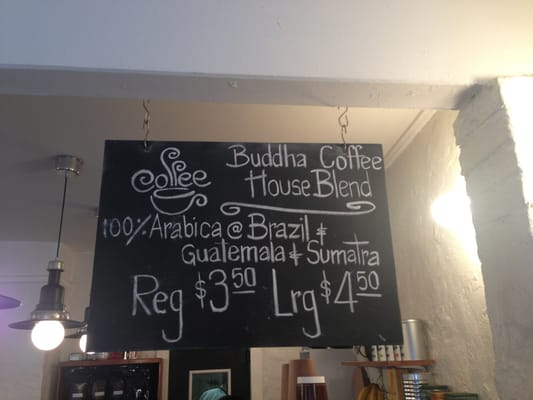 Coffee
Buddha Coffee
House Blend
100% Arabica @ Brazil &
Guatemala & Sumatra
Reg $3.50 Lrg $4.50